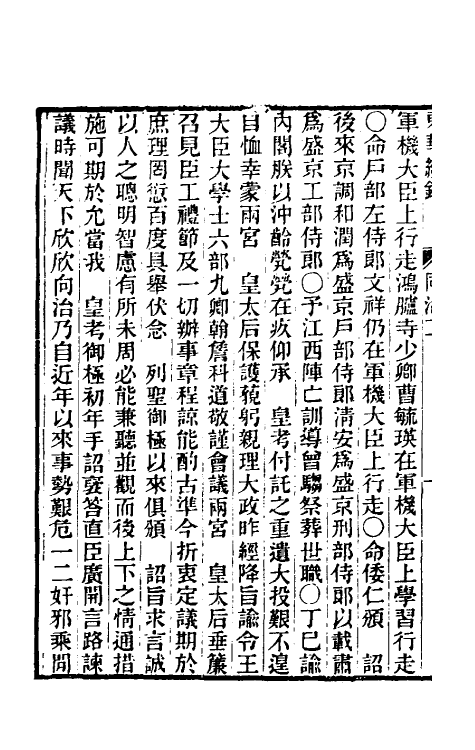 軍機大臣上行走鴻臚寺少卿曹毓瑛在軍機大臣上學習行走
〇命戶部左侍郎文祥仍在軍機大臣上行走〇命倭仁頒　詔
後來京調和潤爲盛京戶部侍郎淸安爲盛京刑部侍郎以載肅
爲盛京工部侍郎〇予江西陣亡訓導曾騶祭葬世職〇丁巳諭
內閣朕以沖齡煢煢在疚仰承　皇考付託之重遺大投艱不遑
自恤幸蒙兩宮　皇太后保護藐躬親理大政昨經降旨諭令王
大臣大學士六部九卿翰詹科道敬謹會議兩宮　皇太后垂簾
召見臣工禮節及一切辦事章程諒能酌古準今折衷定議期於
庶理罔愆百度具舉伏念　列聖御極以來俱頒　詔旨求言誠
以人之聰明智慮有所未周必能兼聽並觀而後上下之情通措
施可期於允當我　皇考御極初年手詔褒答直臣廣開言路諫
議時聞天下欣欣向治乃自近年以來事勢艱危一二奸邪乘間